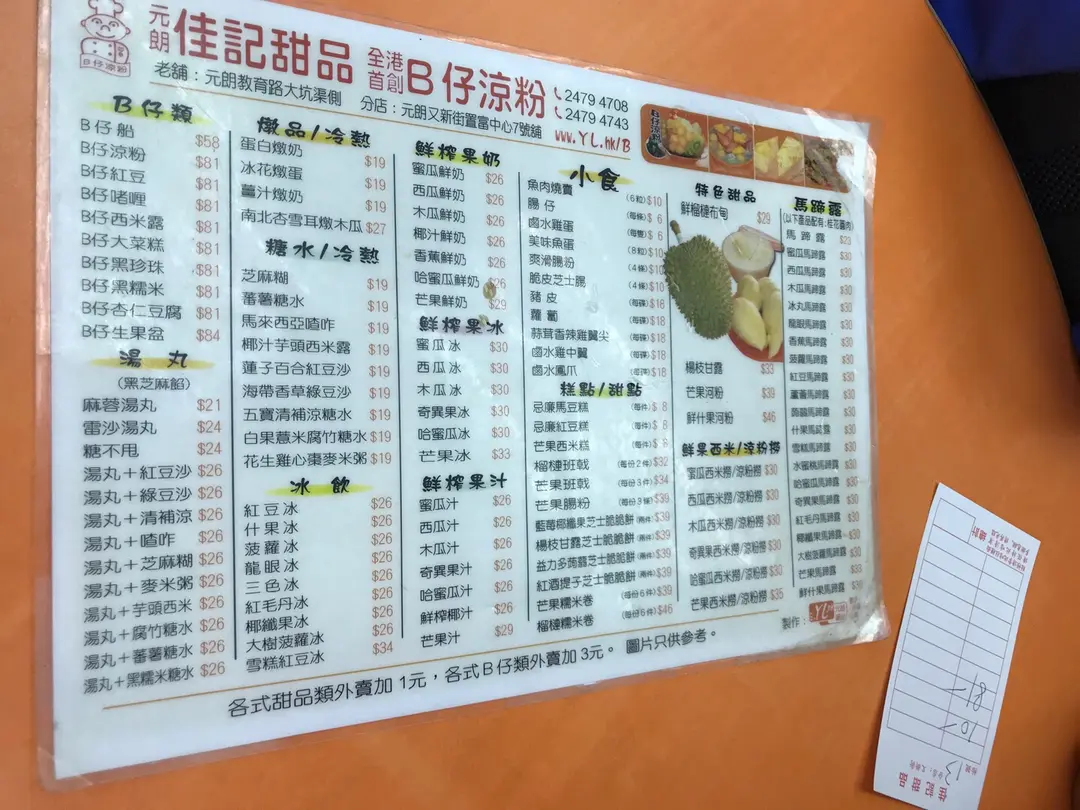 元朗佳記甜品 全港首創B仔涼粉 2479 4708
2479 4743
老舖：元朗教育路大坑渠側 分店：元朗又新街置富中心7號舖 www.YL.hk/B
B仔涼粉
B仔類
B仔船 $58
B仔涼粉 $81
B仔紅豆 $81
B仔啫喱 $81
B仔西米露 $81
B仔大菜糕 $81
B仔黑珍珠 $81
B仔黑糯米 $81
B仔杏仁豆腐 $81
B仔生果盆 $84
湯丸
(黑芝麻餡)
麻蓉湯丸 $21
雷沙湯丸 $24
糖不甩 $24
湯丸＋紅豆沙 $26
湯丸＋綠豆沙 $26
湯丸＋清補涼 $26
湯丸＋喳咋 $26
湯丸＋芝麻糊 $26
湯丸＋麥米粥 $26
湯丸＋芋頭西米 $26
湯丸＋腐竹糖水 $26
湯丸＋蕃薯糖水 $26
湯丸＋黑糯米糖水 $26
燉品/冷熱
蛋白燉奶 $19
冰花燉蛋 $19
薑汁燉奶 $19
南北杏雪耳燉木瓜 $27
糖水/冷熱
芝麻糊 $19
蕃薯糖水 $19
馬來西亞喳咋 $19
椰汁芋頭西米露 $19
蓮子百合紅豆沙 $19
海帶香草綠豆沙 $19
五寶清補涼糖水 $19
白果薏米腐竹糖水 $19
花生雞心棗麥米粥 $19
冰飲
紅豆冰 $26
什果冰 $26
菠蘿冰 $26
龍眼冰 $26
三色冰 $26
紅毛丹冰 $26
椰纖果冰 $26
大樹菠蘿冰 $26
雪糕紅豆冰 $34
鮮榨果奶
蜜瓜鮮奶 $26
西瓜鮮奶 $26
木瓜鮮奶 $26
椰汁鮮奶 $26
香蕉鮮奶 $26
哈蜜瓜鮮奶 $26
芒果鮮奶 $29
鮮榨果冰
蜜瓜冰 $30
西瓜冰 $30
木瓜冰 $30
奇異果冰 $30
哈蜜瓜冰 $30
芒果冰 $33
鮮榨果汁
蜜瓜汁 $26
西瓜汁 $26
木瓜汁 $26
奇異果汁 $26
哈蜜瓜汁 $26
鮮榨椰汁 $26
芒果汁 $29
小食
魚肉燒賣 (6粒) $10
腸仔 (每條) $6
鹵水雞蛋 (每隻) $6
美味魚蛋 (8粒) $10
爽滑腸粉 (4條) $10
脆皮芝士腸 (4條) $10
豬皮 (每碟) $18
蘿蔔 (每碟) $18
蒜茸香辣雞翼尖 (每碟) $18
鹵水雞中翼 (每碟) $18
鹵水鳳爪 (每碟) $18
糕點/甜點
忌廉馬豆糕 (每件) $8
忌廉紅豆糕 (每件) $8
芒果西米糕 (每件) $8
榴槤班戟 (每份2件) $32
芒果班戟 (每份3件) $34
芒果腸粉 (每份3條) $39
藍莓椰纖果芝士脆脆餅 $39
楊枝甘露芝士脆脆餅 $39
益力多蒟蒻芝士脆脆餅 $39
紅酒提子芝士脆脆餅 $39
芒果糯米卷 (每份6件) $39
榴槤糯米卷 (每份6件) $46
特色甜品
鮮榴槤布甸 $29
楊枝甘露 $33
芒果河粉 $39
鮮什果河粉 $46
鮮果西米/涼粉撈
蜜瓜西米撈/涼粉撈 $30
西瓜西米撈/涼粉撈 $30
木瓜西米撈/涼粉撈 $30
奇異果西米撈/涼粉撈 $30
哈蜜瓜西米撈/涼粉撈 $30
芒果西米撈/涼粉撈 $35
馬蹄露
(以下產品配有:桂花醬肉)
馬蹄露 $23
蜜瓜馬蹄露 $30
西瓜馬蹄露 $30
木瓜馬蹄露 $30
冰丸馬蹄露 $30
龍眼馬蹄露 $30
香蕉馬蹄露 $30
菠蘿馬蹄露 $30
紅豆馬蹄露 $30
蘆薈馬蹄露 $30
蒟蒻馬蹄露 $30
什果馬蹄露 $30
雪糕馬蹄露 $30
水蜜桃馬蹄露 $30
哈蜜瓜馬蹄露 $30
奇異果馬蹄露 $30
紅毛丹馬蹄露 $30
椰纖果馬蹄露 $30
大樹菠蘿馬蹄露 $30
芒果馬蹄露 $30
鮮什果馬蹄露 $30
各式甜品類外賣加 1元，各式B仔類外賣加 3元。 圖片只供參考。
製作： YL
佳記甜品
13
10
81
總計